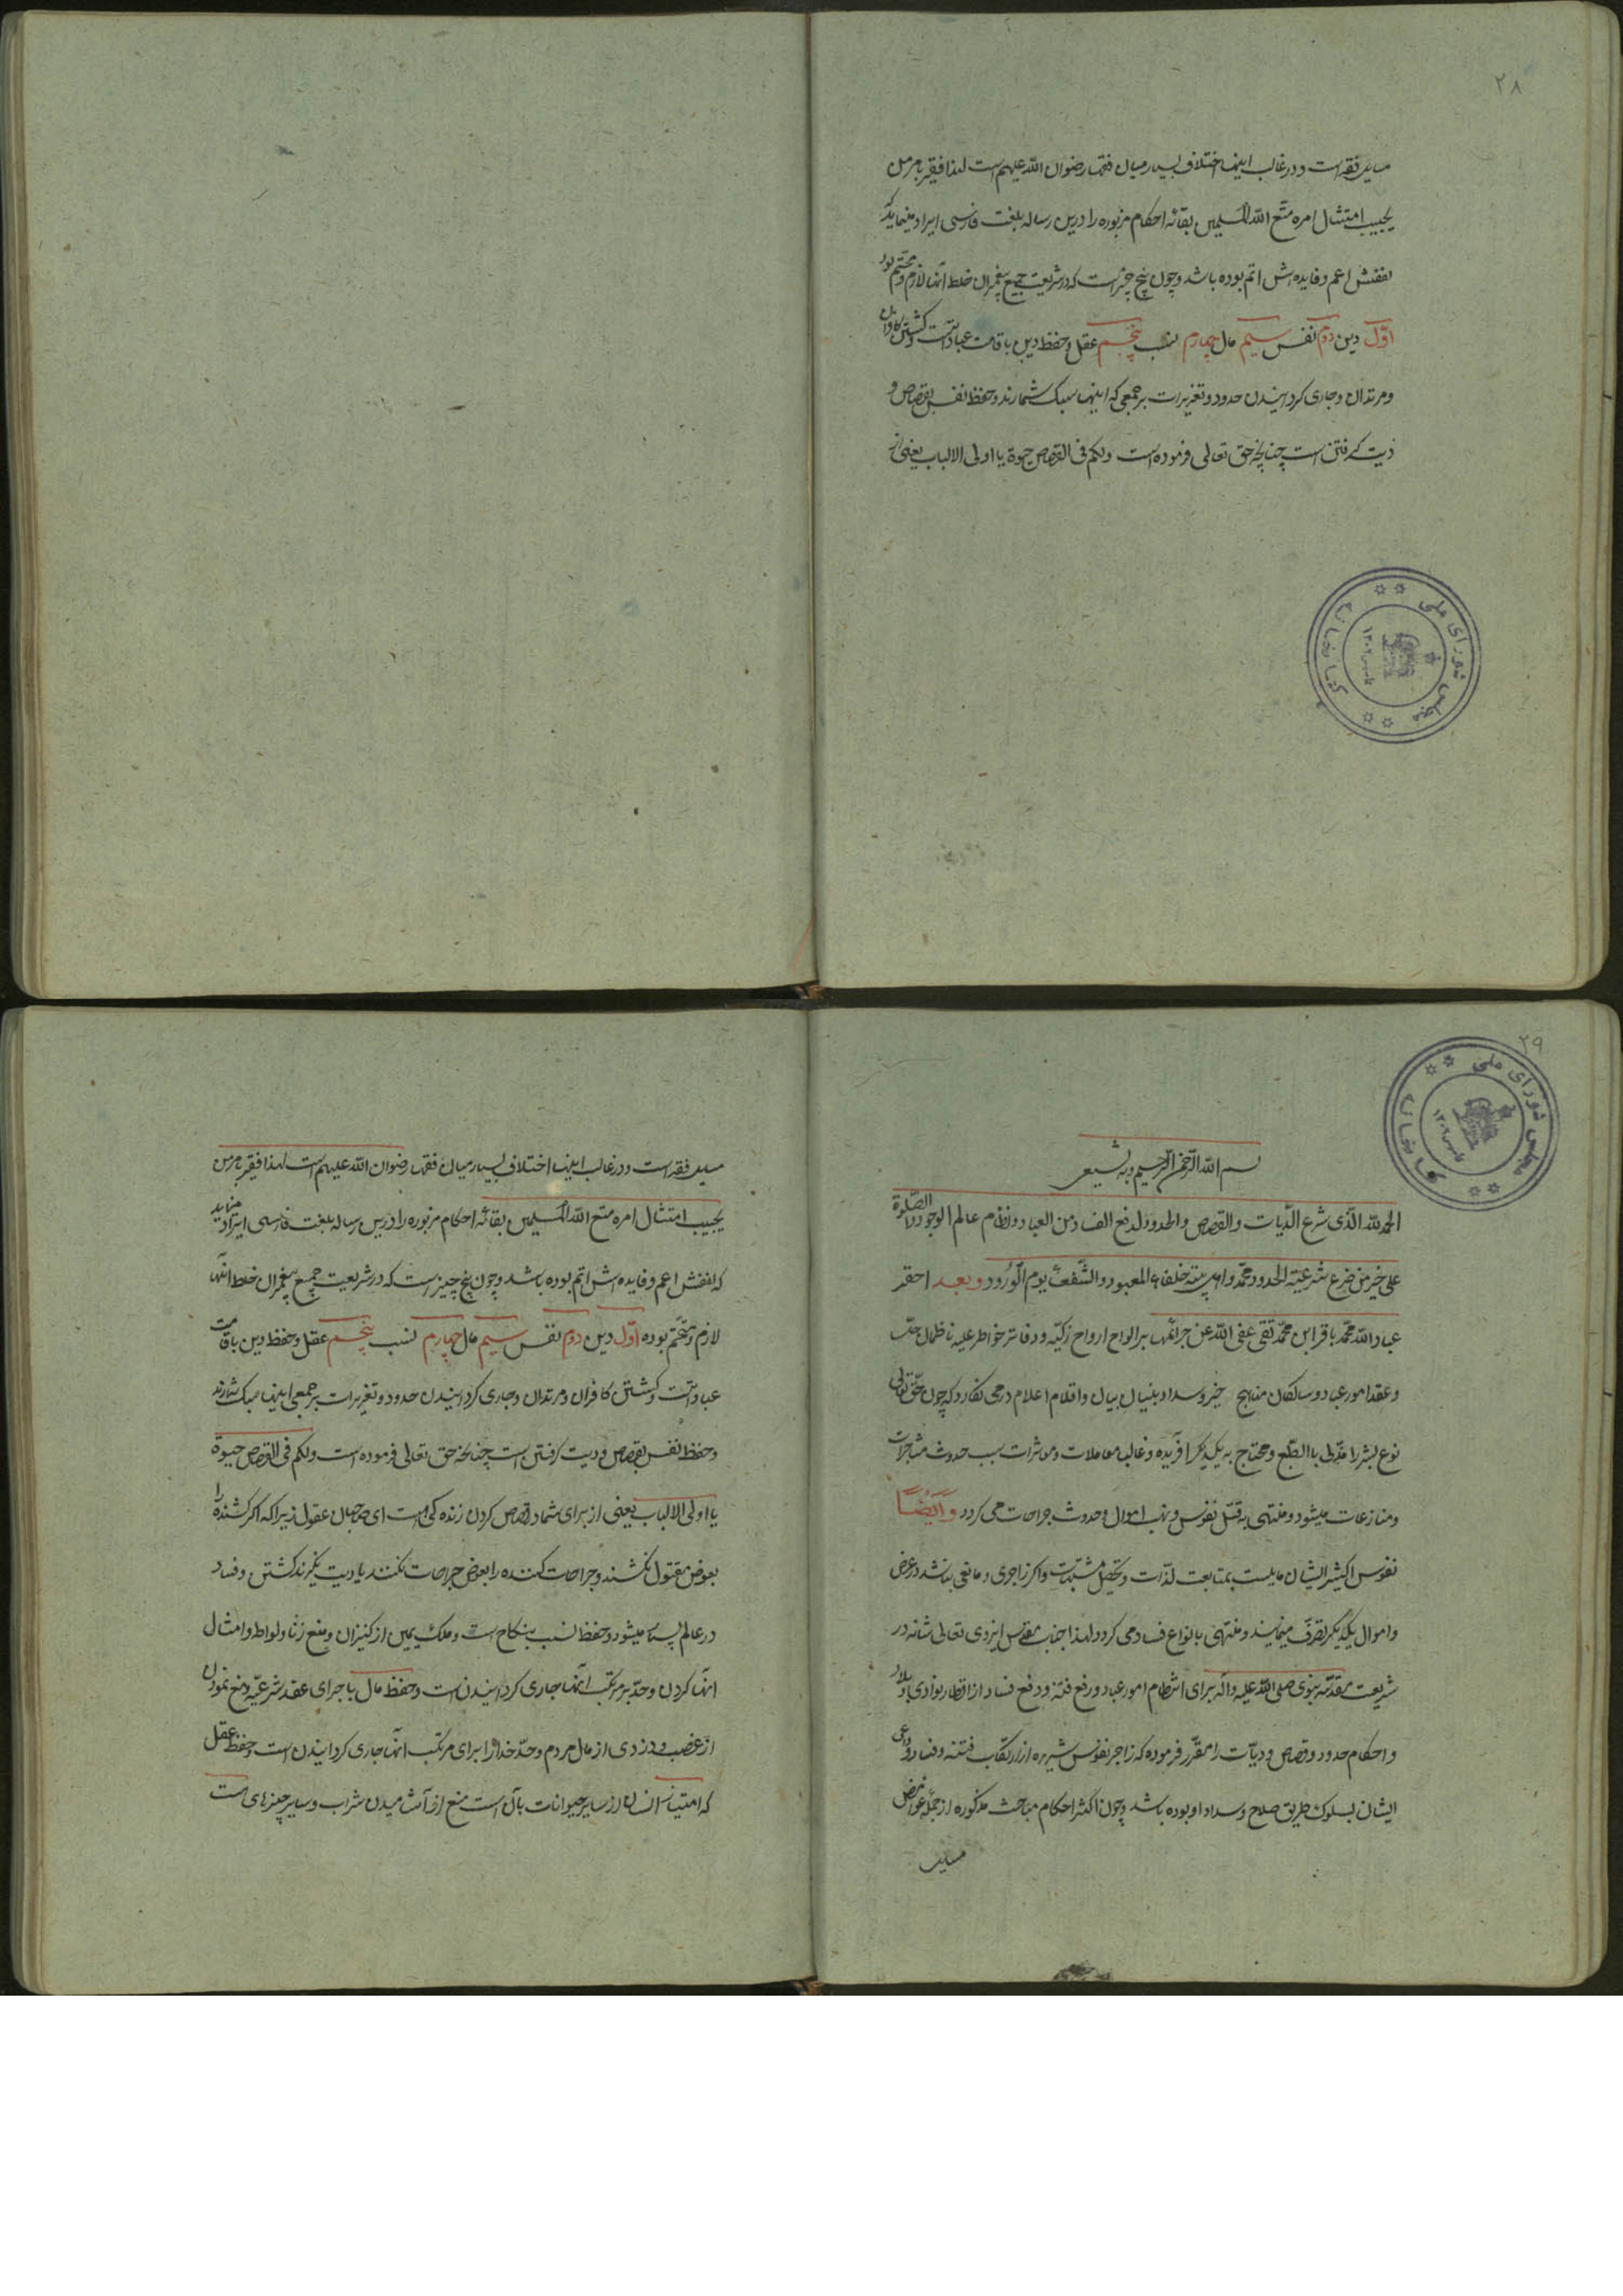 ۲۸
مسایل فقه است و در غالب اینها اختلاف بسیار میان فقها رضوان الله علیهم است لهذا فقیر بامر من
یجیب امتثال امره متع الله المسلمین بقائه احکام مزبوره را درین رساله بلغت فارسی ایراد مینماید که
نفعش اعم و فایده‌اش اتم بوده باشد و چون پنج چیز است که در شریعت جمیع پیغمبران حفظ آنها لازم و محتم بود
اوّل دین دوم نفس سیم مال چهارم نسب پنجم عقل و حفظ دین باقامت عباداتست و کشتن کافران
و مرتدان و جاری کردانیدن حدود و تعزیرات بر جمعی که اینها سبک شمارند و حفظ نفس بقصاص و
دیت گرفتن است چنانچه حق تعالی فرموده است ولکم فی القصاص حیوة یا اولی الالباب یعنی از
مجلس شورای ملی
کتابخانه
تاسیس ۱۳۰۲
۲۹
مجلس شورای ملی
کتابخانه
تاسیس ۱۳۰۲
بسم الله الرّحمن الرّحیم وبه نستعین
الحمدلله الّذی شرع الدّیات والقصاص والحدود لدفع الفساد من العباد ونظام عالم الوجود والصّلوة
علی خیر من شرع شرعیته الحدود محمّد واهل بیته خلفاء المعبود والشّفعاء یوم الوُرُود وبعد احقر
عباد الله محمّد باقر ابن محمّد تقی عفی الله عن جرائمها بر الواح ارواح زکیّه و دفاتر خواطر علیه ناظمان حلّ
و عقد امور عباد و سالکان مناهج خیر و سداد ببنیان بیان و اقلام اعلام در می نکارد که چون حقّ تعالی
نوع بشر را مدّنی باالطّبع و محتاج به یکدیکر افریده و غالب معاملات و معاشرات سبب حدوث مشاجرات
و منازعات میشود و منتهی به قتل نفوس و نهب اموال و حدوث جراحات می کردد وایضًا
نفوس اکثر ایشان مایلست بمتابعت لذّات و تحصیل مشتهیات و اکر زاجری و مانعی نباشد در عرض
و اموال یکدیگر تصرّف مینمایند و منتهی بانواع فساد می کردد لهذا جناب مقدّس ایزدی تعالی شانه در
شریعت مقدّسه نبوی صلی الله علیه واله برای انتظام امور عباد و رفع فتنه و دفع فساد از اقطار بوادی و بلاد
و احکام حدود و قصاص و دیّات را مقرّر فرموده که زاجر نفوس شریره از ارتکاب فتنه و فساد و داعی
ایشان بسلوک طریق صلاح و سداد او بوده باشد و چون اکثر احکام مباحث مذکوره از جمله غوامض
مسایل
مسایل فقه است و در غالب اینها اختلاف بسیار میان فقهاء رضوان الله علیهم است لهذا فقیر بامر من
یجیب امتثال امره متع الله المسلمین بقائه احکام مزبوره را درین رساله بلغت فارسی ایراد مینماید
که نفعش اعم و فایده‌اش اتم بوده باشد و چون پنج چیز است که در شریعت جمیع پیغمبران حفظ آنها
لازم و متحتم بوده اوّل دین دوم نفس سیم مال چهارم نسب پنجم عقل و حفظ دین باقامت
عباداتست و کشتن کافران و مرتدان و جاری کردانیدن حدود و تعزیرات بر جمعی اینها سبک شمارند
و حفظ نفس بقصاص و دیت کرفتن است چنانچه حق تعالی فرموده است ولکم فی القصاص حیوة
یا اولی الالباب یعنی از برای شما در قصاص کردن زنده کی است ای صاحبان عقول زیرا که اکر کشنده را
بعوض مقتول نکشند و جراحات کننده را بعوض جراحات نکنند یا دیت نکیرند کشتن و فساد
در عالم بسیار میشود و حفظ نسب بنکاح است و ملک یمین از کنیزان و منع زنا و لواط و امثال
انها کردن و حدّ بر مرتکب انها جاری کردانیدن است و حفظ مال باجرای عقد شرعیّه و منع نمودن
از غصب و دزدی از مال مردم و حدّ خدا را برای مرتکب انها جاری کردانیدن است و حفظ عقل
که امتیاز انسان از سایر حیوانات بآن است منع از آشامیدن شراب و سایر چیزهای مست